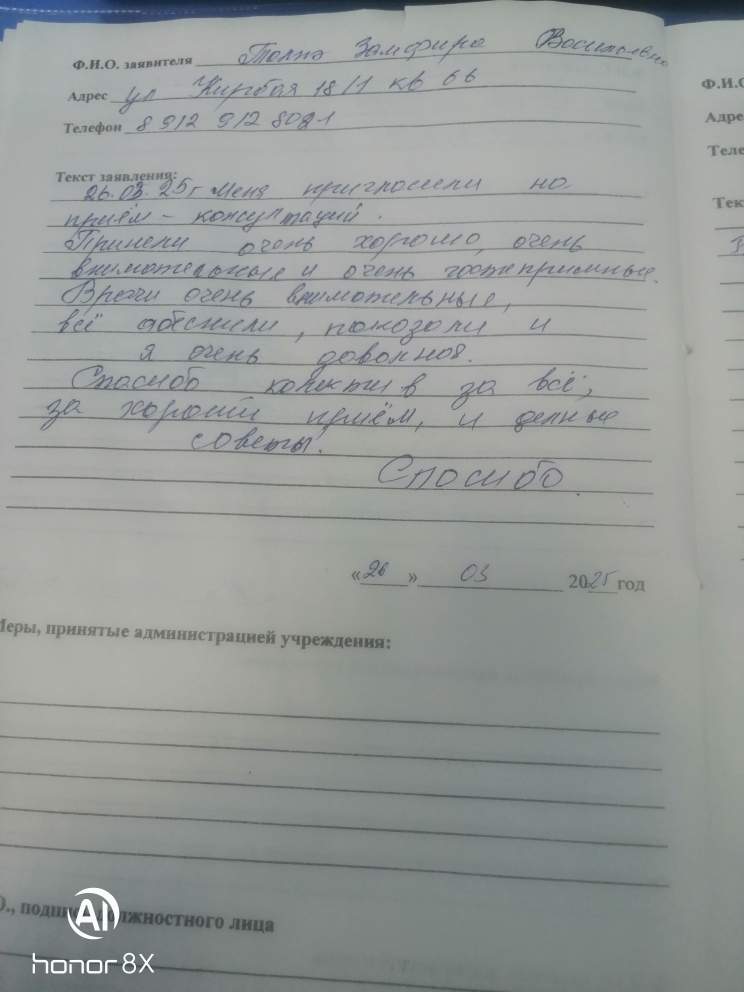 Ф.И.О. заявителя Толпэ Замфира Васильевна
Ф.И.О
Адрес ул Киртбая 18/1 кв 66
Адре
Телефон 8 912 912 8021
Теле
Текст заявления:
Тек
26.03.25г Меня пригласили на
приём - консультаций.
Приняли очень хорошо, очень
внимательные и очень гостеприимные.
Врачи очень внимательные,
всё абяснили, показали и
я очень довольноя.
Спасибо колектив за всё,
за хороший приём, и делные
советы.
Спасибо.
«26» 03 2025 год
Меры, принятые администрацией учреждения:
О., подпись должностного лица
AI
honor 8X